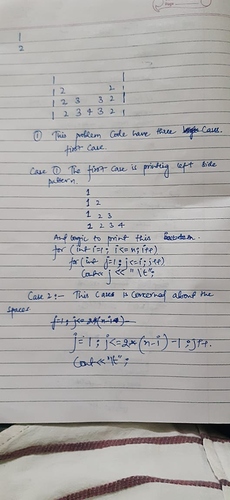 1
2
1 1
1 2 2 1
1 2 3 3 2 1
1 2 3 4 3 2 1
① This problem Code have three Cases
first case.
Case ① The first case is printing left side
pattern.
1
1 2
1 2 3
1 2 3 4
And logic to print this
for (int i=1; i<=n; i++)
for (int j=1; j<=i; j++)
Cout << j << "\t";
Case 2:- This Cases is Concerned about the
spaces
j=1; j<=2*(n-i)-1; j++.
Cout << "\t";